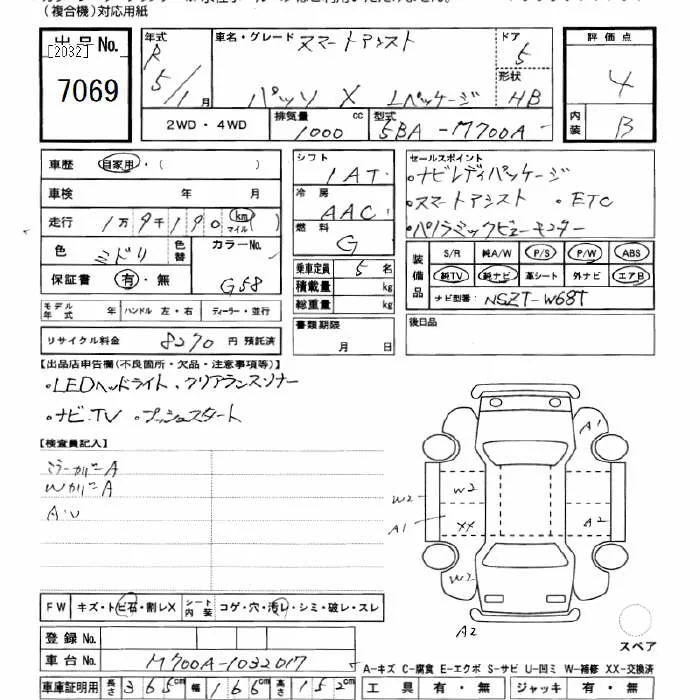 (複合機)対応用紙
出品No. 年式 車名・グレード スマートアシスト ドア 評価点
[2032] R 5
7069 5/1月 パッソ X Lパッケージ 形状 HB 4
2WD・4WD 排気量 1000 cc 型式 5BA-M700A 内装 B
車歴 自家用・( )
車検 年 月
走行 1万9千190 km マイル
色 ミドリ 色替 カラーNo. G58
保証書 有・無
シフト 1AT
冷房 AAC
燃料 G
乗車定員 5名
積載量 kg
総重量 kg
セールスポイント
・ナビレディパッケージ
・スマートアシスト ・ETC
・パノラミックビューモニター
装備品 S/R 純A/W P/S P/W ABS
純TV 純ナビ 革シート 外ナビ エアB
ナビ型番: NSZT-W68T
モデル年式 年 ハンドル 左・右 ディーラー・並行
書類期限 月 日
後日品
リサイクル料金 8270 円 預託済
【出品店申告欄(不良箇所・欠品・注意事項等)】
・LEDヘッドライト ・クリアランスソナー
・ナビ.TV ・プッシュスタート
【検査員記入】
ミラーカバーA
WカバーA
A・U
A1
W2 W2
A1 XX A2
W2
A2
スペア
FW キズ・トビ石・割レX シート内装 コゲ・穴・汚レ・シミ・破レ・スレ
登録No.
車台No. M700A-1032017
A-キズ C-腐食 E-エクボ S-サビ U-凹ミ W-補修 XX-交換済
車庫証明用 長さ 365cm 幅 166cm 高さ 152cm 工具 有・無 ジャッキ 有・無